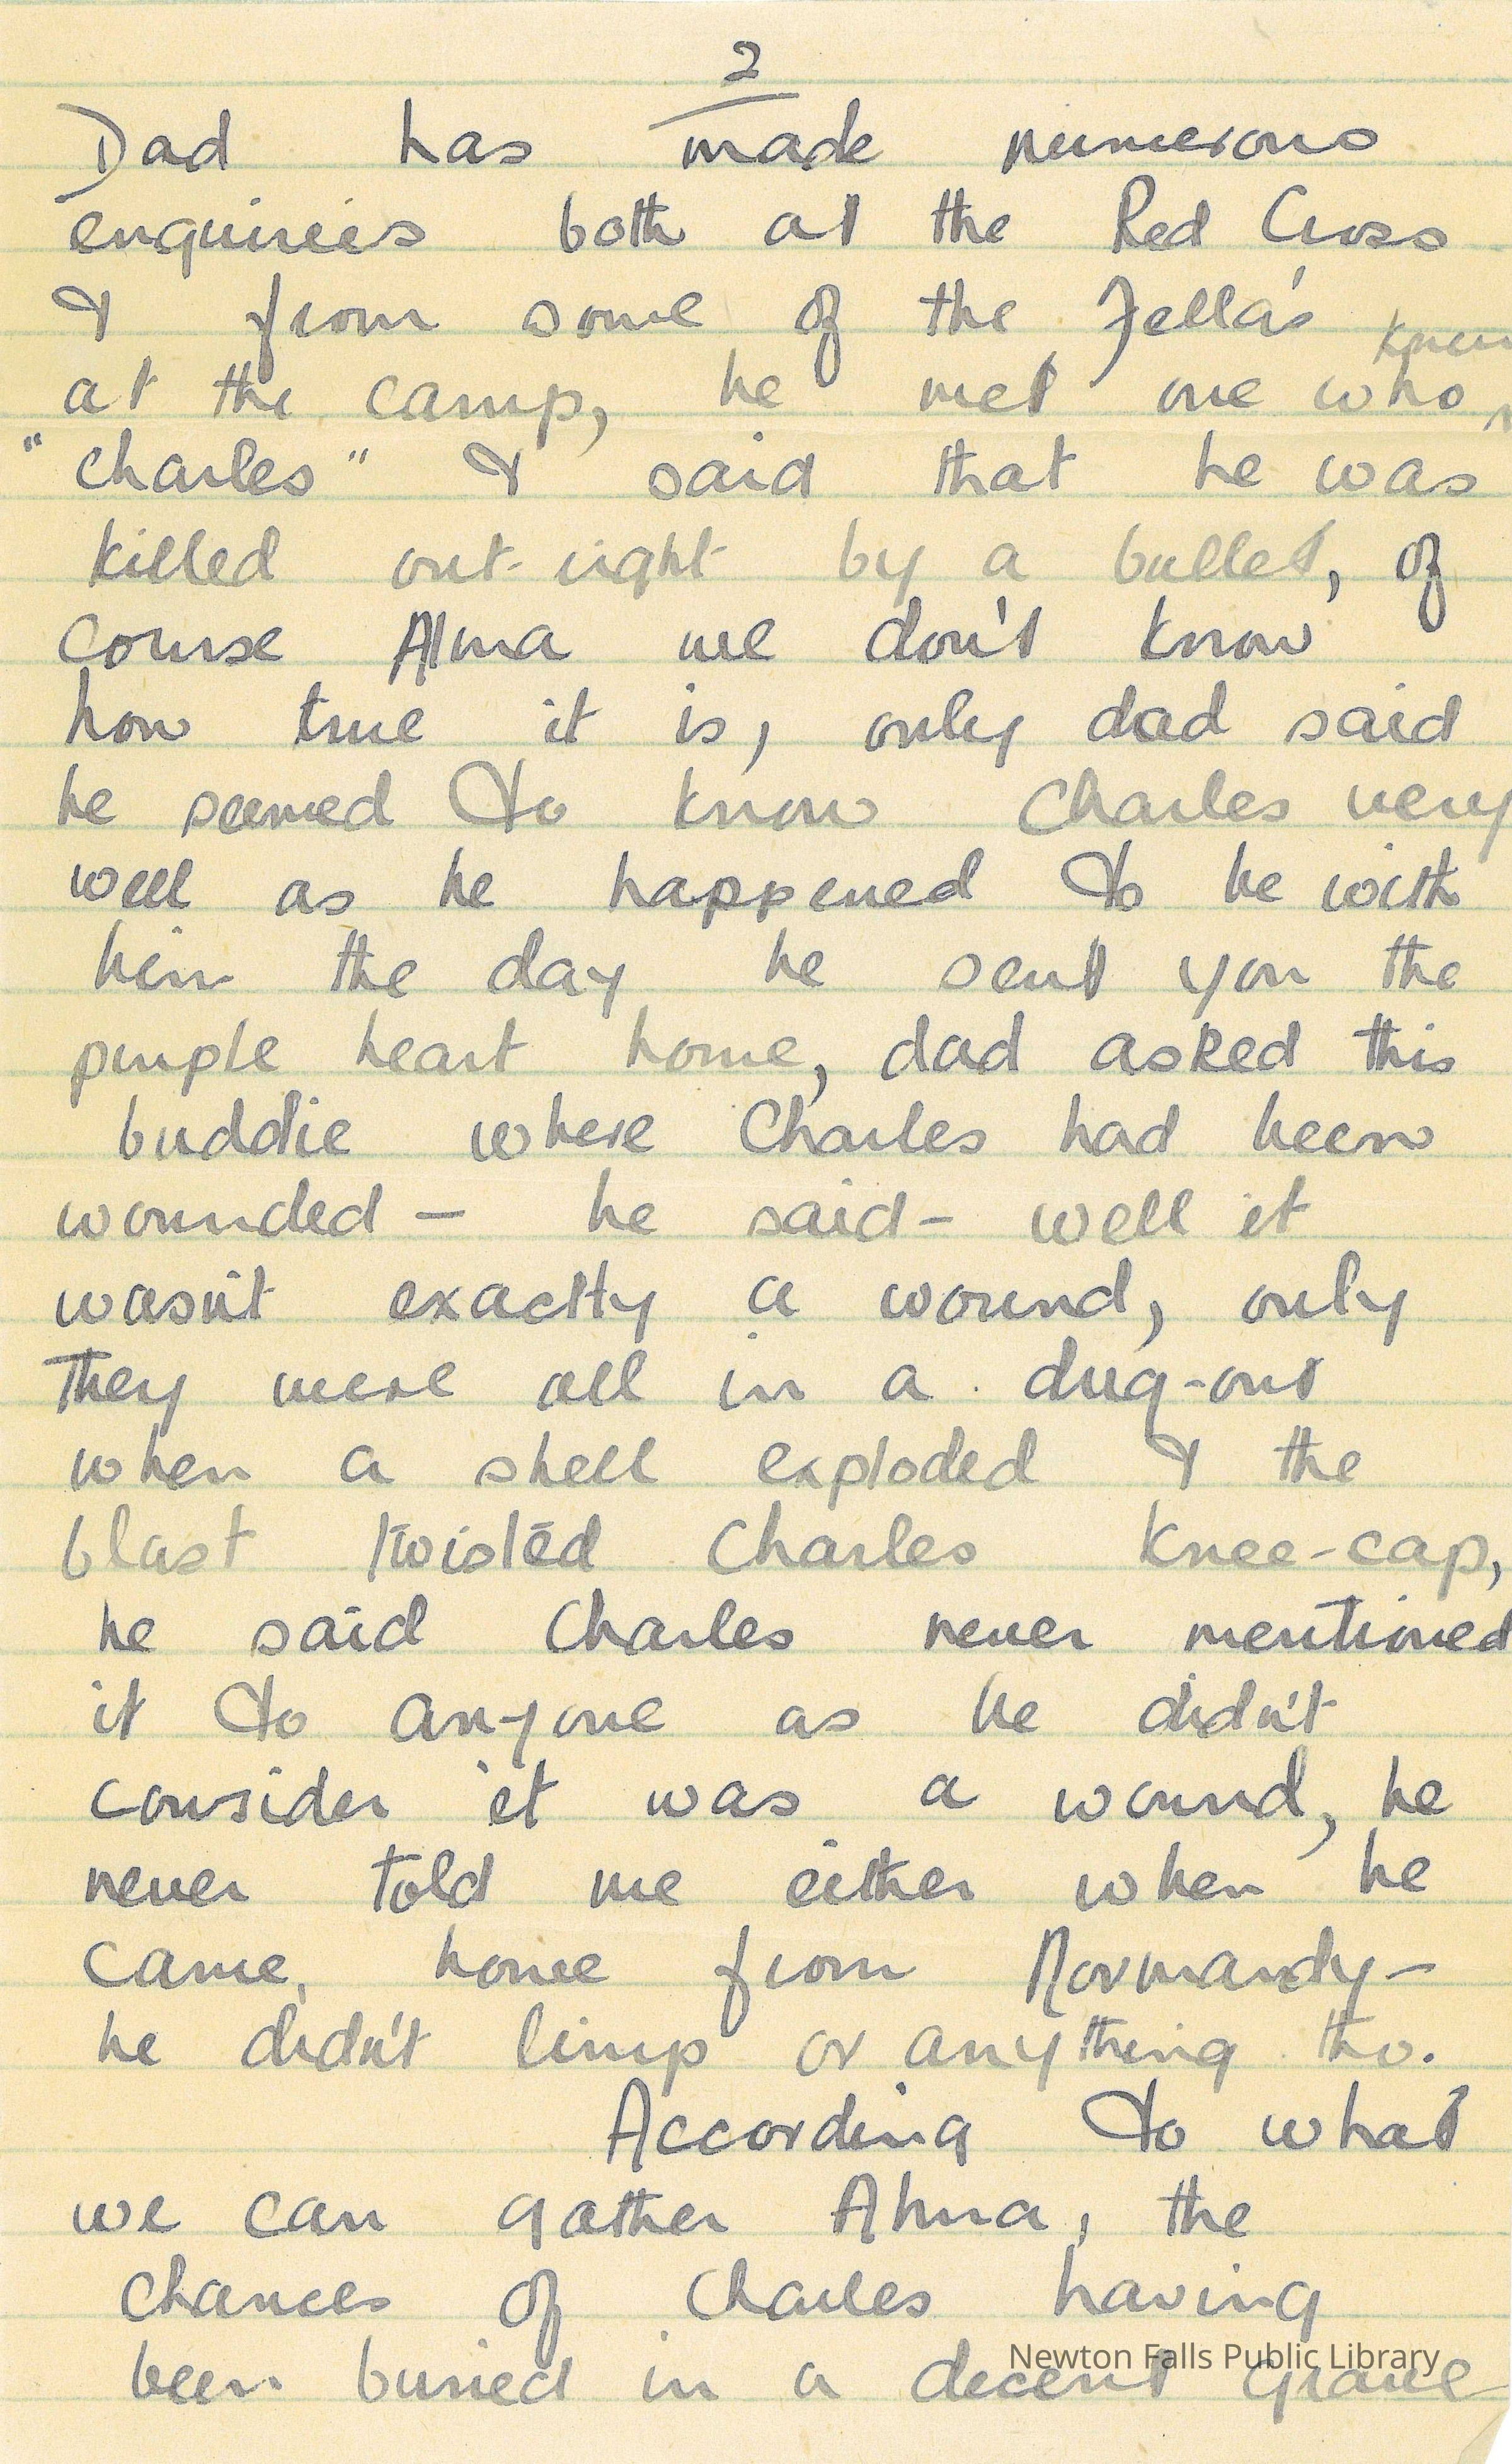 2
Dad has made numerous
enquiries both at the Red Cross
& from some of the Fella's
at the camp, he met one who knew
"Charles" & said that he was
killed out-right by a bullet, of
course Alma we don't know
how true it is, only dad said
he seemed to know Charles very
well as he happened to be with
him the day he sent you the
purple heart home, dad asked this
buddie where Charles had been
wounded — he said — well it
wasn't exactly a wound, only
They were all in a dug-out
when a shell exploded & the
blast twisted Charles knee-cap,
he said Charles never mentioned
it to anyone as he didn't
consider it was a wound, he
never told me either when he
came, home from Normandy —
he didn't limp or anything tho.
According to what
we can gather Alma, the
chances of Charles having
been buried in a decent grave
Newton Falls Public Library